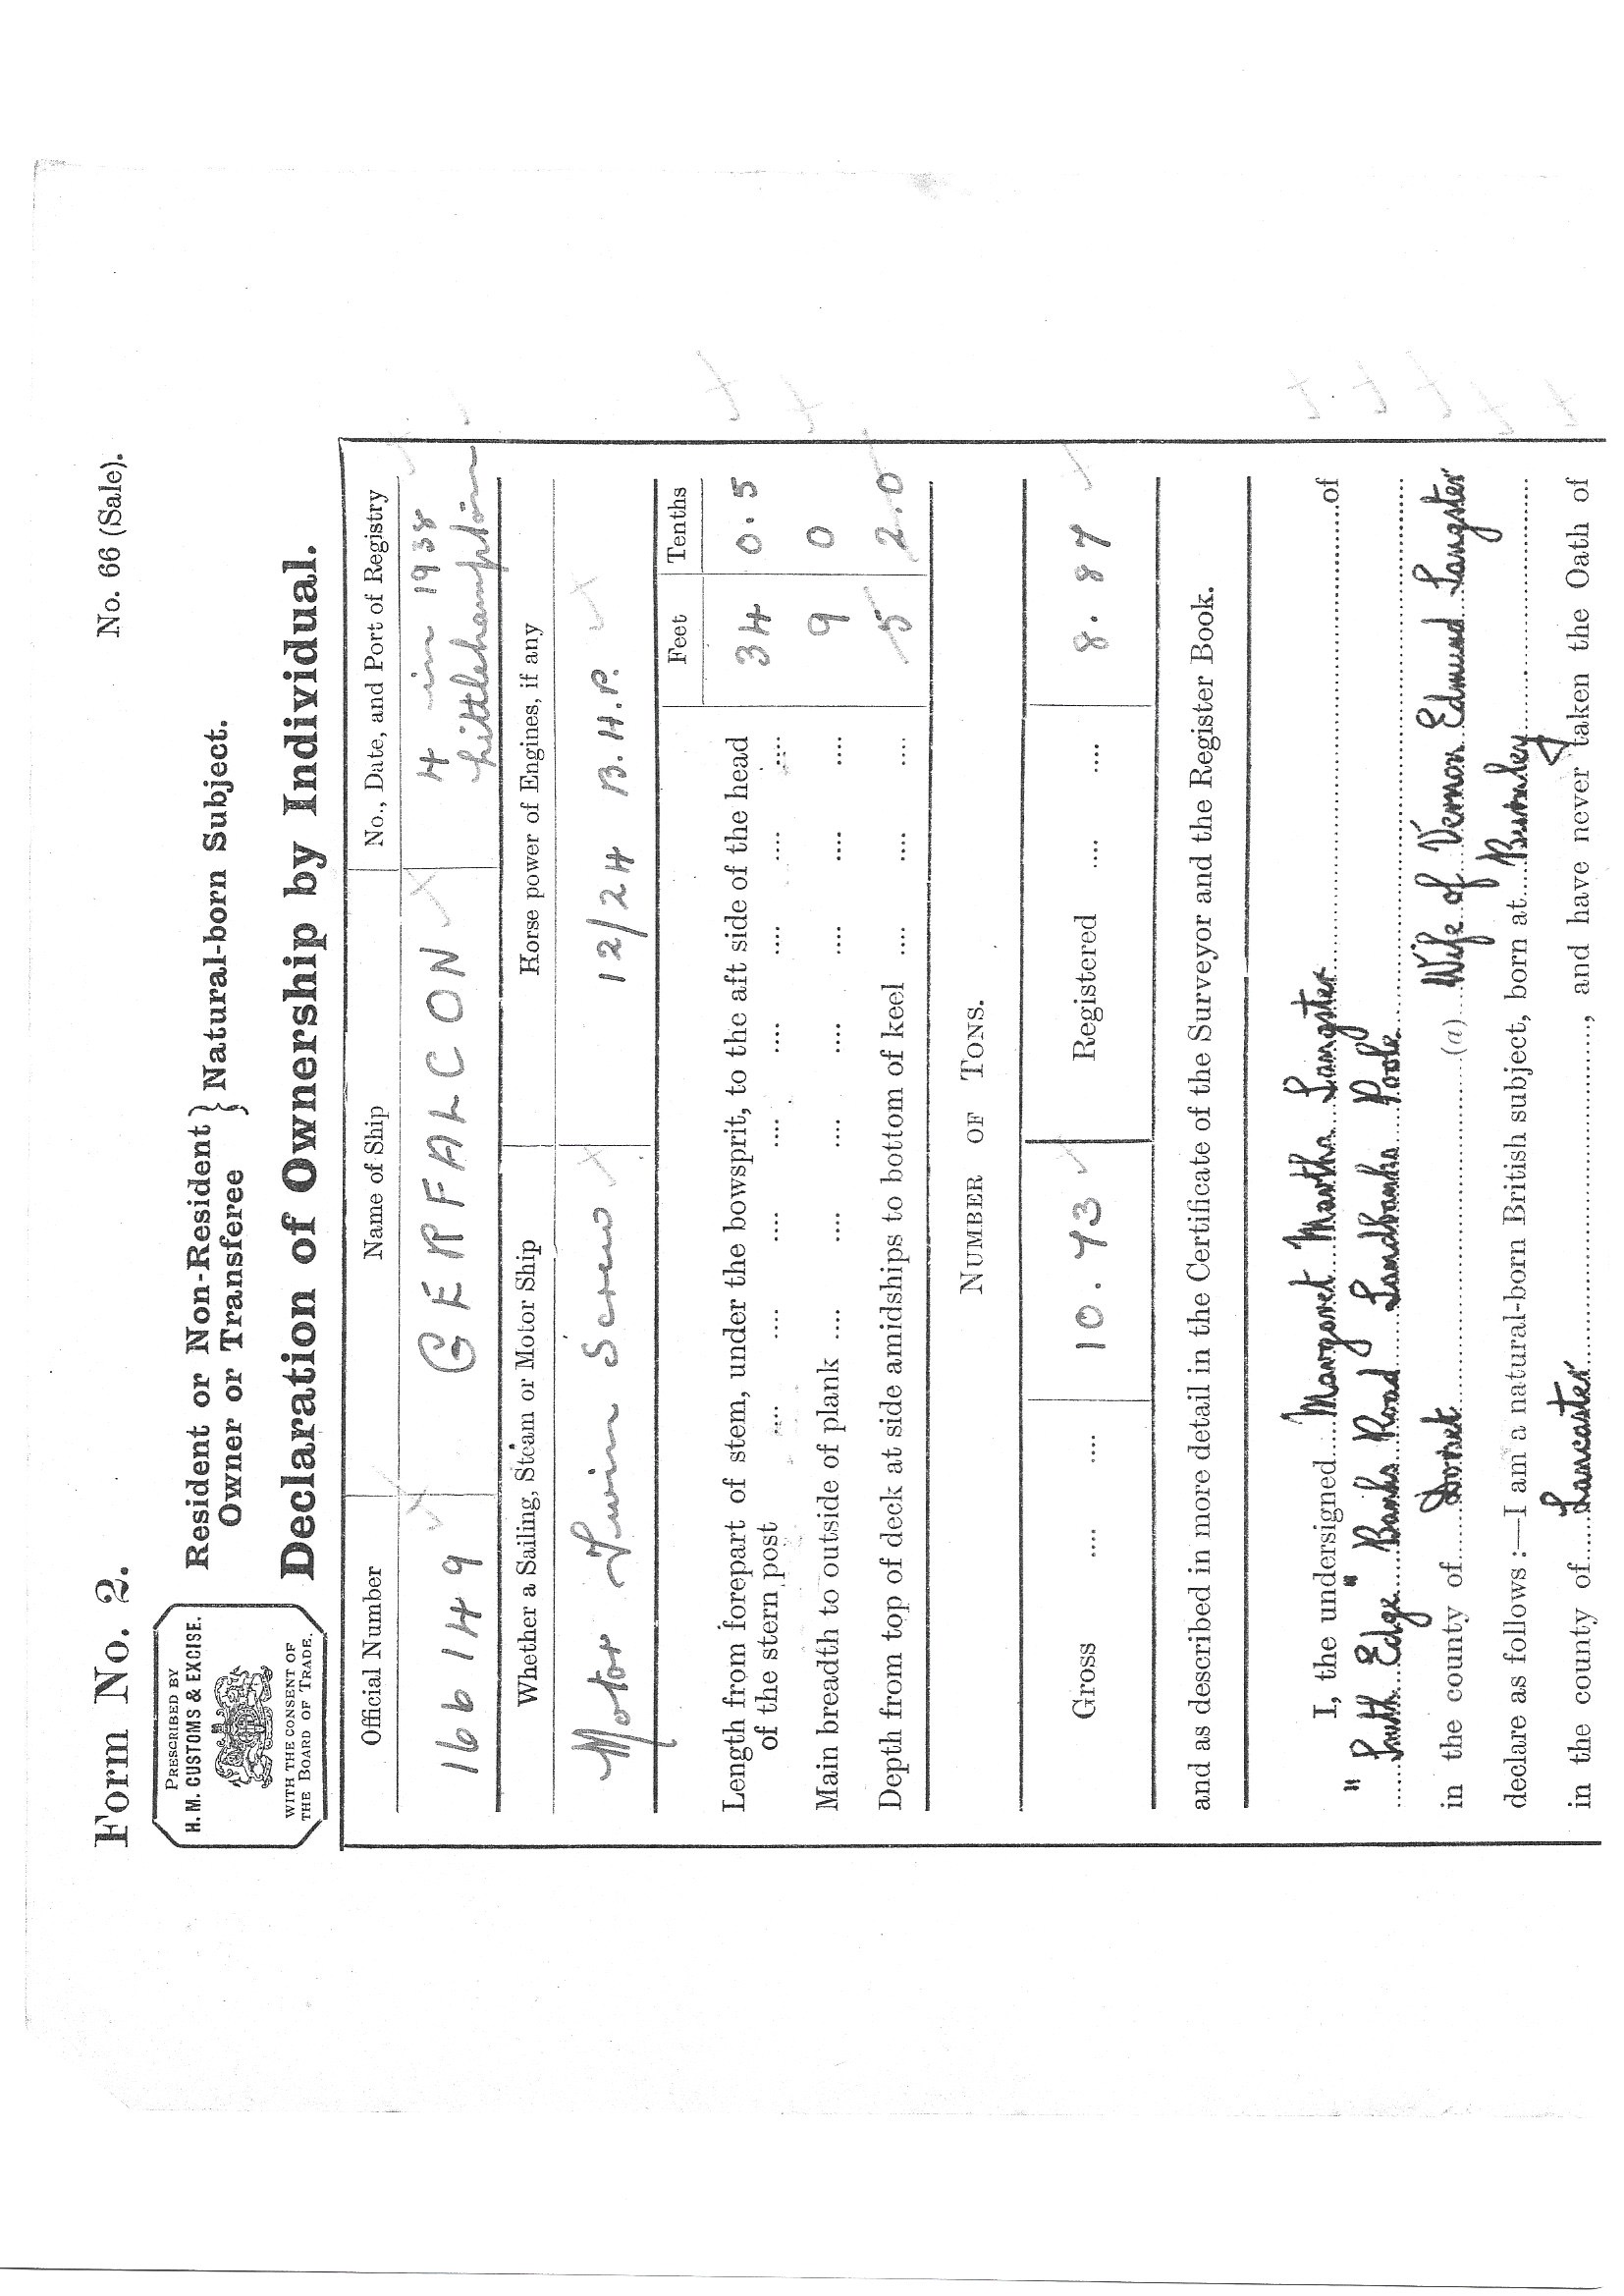 Form No. 2.
No. 66 (Sale).
PRESCRIBED BY
H. M. CUSTOMS & EXCISE.
WITH THE CONSENT OF
THE BOARD OF TRADE.
Resident or Non-Resident } Natural-born Subject.
Owner or Transferee
Declaration of Ownership by Individual.
Official Number Name of Ship No., Date, and Port of Registry
166149 GERFALCON 4 in 1938
Littlehampton
Whether a Sailing, Steam or Motor Ship Horse power of Engines, if any
Motor Twin Screw 12/24 B.H.P.
Feet Tenths
Length from forepart of stem, under the bowsprit, to the aft side of the head
of the stern post .... .... .... .... .... .... .... .... 34 0.5
Main breadth to outside of plank .... .... .... .... .... .... .... 9 0
Depth from top of deck at side amidships to bottom of keel .... .... .... 5 2.0
NUMBER OF TONS.
Gross .... .... 10.73 Registered .... .... 8.87
and as described in more detail in the Certificate of the Surveyor and the Register Book.
I, the undersigned Margaret Martha Langster of
"South Edge" Banks Road Sandbanks Poole
in the county of Dorset (a) Wife of Vernon Edmund Langster
declare as follows :—I am a natural-born British subject, born at Burnley
in the county of Lancaster, and have never taken the Oath of